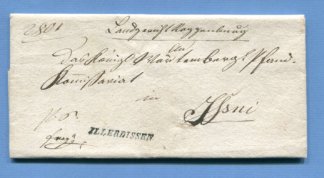 Landgericht Roggenburg
Das Königl Würtembergl Pfand
Kommissariat
in
Isni
ILLERDISSEN